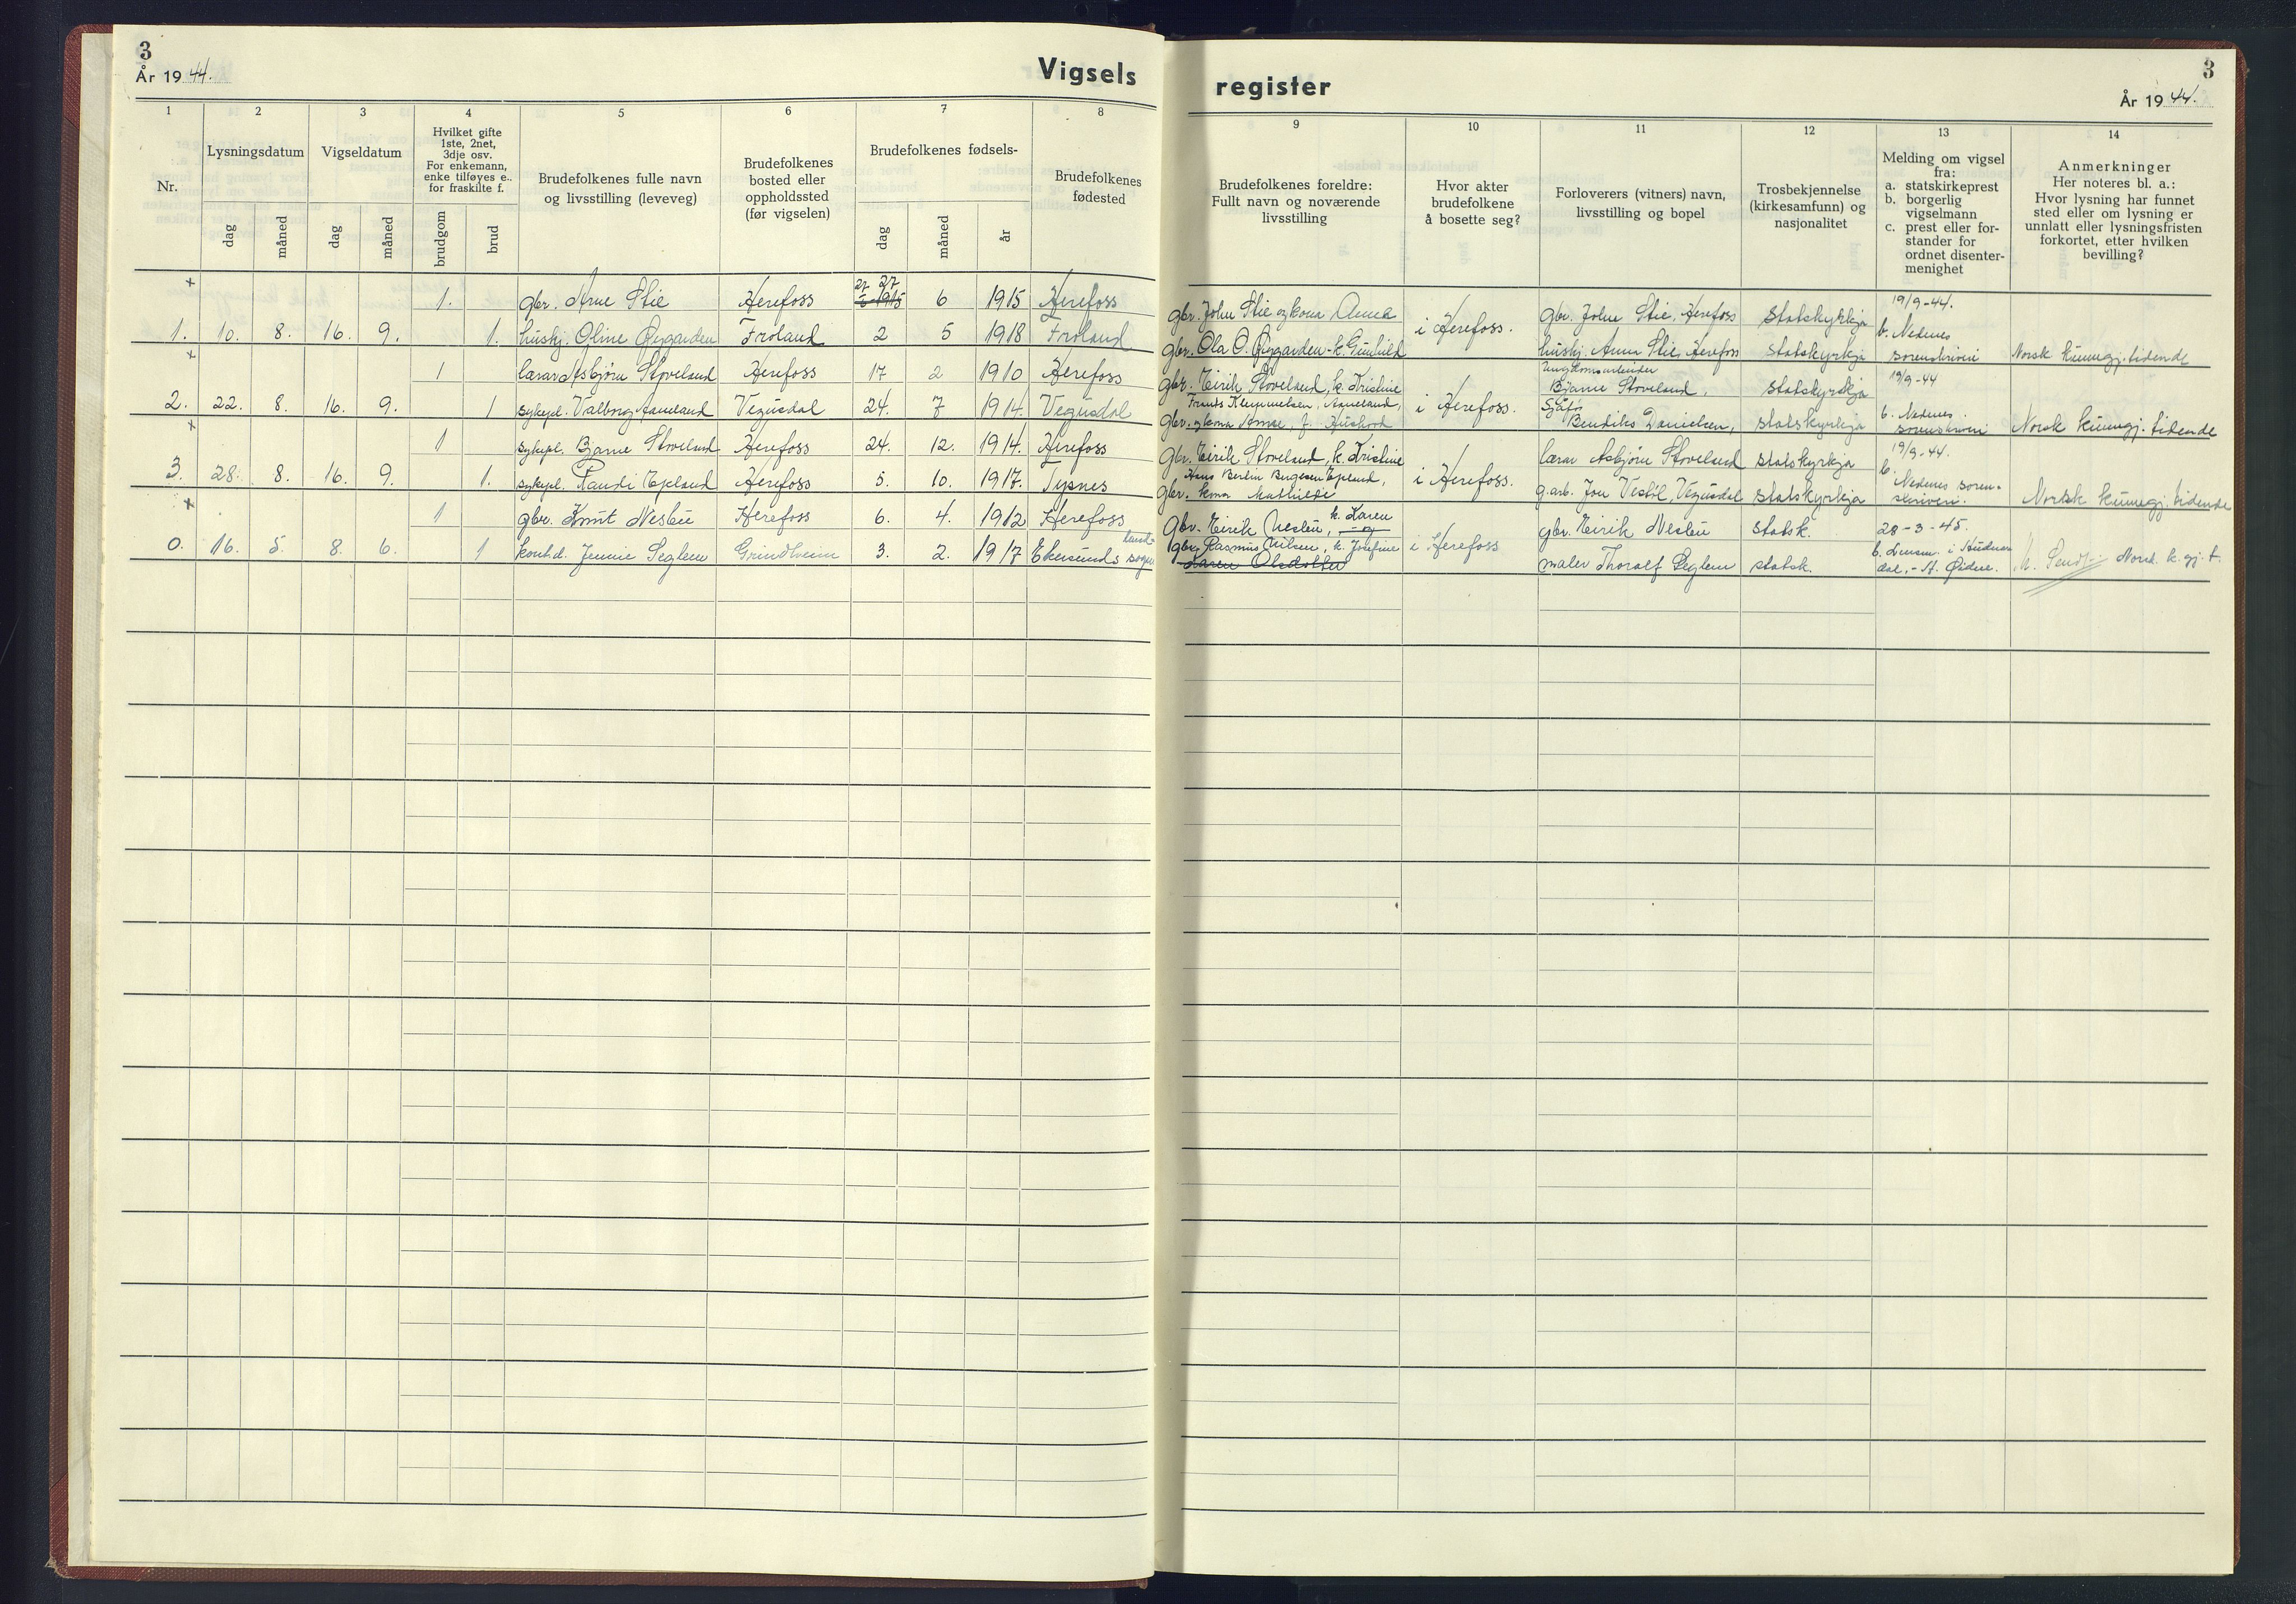 3
År 19 44.
Vigsels
register
3
År 19 44.
1
2
3
4
5
6
7
8
9
10
11
12
13
14
Nr.
Lysningsdatum
dag
måned
Vigseldatum
dag
måned
Hvilket gifte
1ste, 2net,
3dje osv.
For enkemann,
enke tilføyes e..
for fraskilte f.
brudgom
brud
Brudefolkenes fulle navn
og livsstilling (leveveg)
Brudefolkenes
bosted eller
oppholdssted
(før vigselen)
Brudefolkenes fødsels-
dag
måned
år
Brudefolkenes
fødested
Brudefolkenes foreldre:
Fullt navn og noværende
livsstilling
Hvor akter
brudefolkene
å bosette seg?
Forloverers (vitners) navn,
livsstilling og bopel
Trosbekjennelse
(kirkesamfunn) og
nasjonalitet
Melding om vigsel
fra:
a. statskirkeprest
b. borgerlig
vigselmann
c. prest eller for-
stander for
ordnet disenter-
menighet
Anmerkninger
Her noteres bl. a.:
Hvor lysning har funnet
sted eller om lysning er
unnlatt eller lysningsfristen
forkortet, etter hvilken
bevilling?
x 1. gbr. Arne Stie Herefoss 27 6 1915 Herefoss gbr. John Stie og kona Anna gbr. John Stie, Herefoss Statskyrkja 19/9-44.
1. 10. 8. 16. 9. 1. hushj. Oline Øygarden Froland 2 5 1918 Froland gbr. Ola O. Øygarden - k. Gunhild i Herefoss. hushj. Anna Stie, Herefoss Statskyrkja b. Nedenes sorenskriveri Norsk kunngj. tidende
x 1 lærar Asbjørn Stoveland Herefoss 17 2 1910 Herefoss gbr. Eirik Stoveland, k. Kristine Ungdomsarbeider Bjarne Stoveland, Statskyrkja 19/9-44
2. 22. 8. 16. 9. 1 sykepl. Valborg Aameland Vegusdal 24. 7 1914. Vegusdal gbr. Frants Klemmetsen Aameland, og kona Anne, f. i Herefoss. Sjåfør Bendiks Danielsen, Statskyrkja b. Nedenes sorenskriveri Norsk kunngj. tidende
x 1 sykepl. Bjarne Stoveland Herefoss 24. 12. 1914. Herefoss gbr. Eirik Stoveland, k. Kristine lærar Asbjørn Stoveland Statskyrkja 19/9-44.
3. 28. 8. 16. 9. 1. sykepl. Randi Epland Herefoss 5. 10. 1917. Tysnes gbr. Hans Berlin Birgesen Epland, kona Mathilde i Herefoss. g.arb. Jon Vestøl, Vegusdal Statskyrkja b. Nedenes sorenskriveri. Norsk kunngj. tidende
x 1 gbr. Knut Nesbu Herefoss 6. 4. 1912 Herefoss gbr. Eirik Nesbu, k. Karen og gbr. Eirik Nesbu Statsk. 28-3-45.
0. 16. 5. 8. 6. 1 kontd. Jennie Seglem Grindheim 3. 2. 1917 Ekersunds landsogn gbr. Rasmus Nilsen, k. Josefine Karen Olsdotter i Herefoss maler Thoralf Seglem Statsk. b. Lensm. i dal, - Norsk k. gj. t.